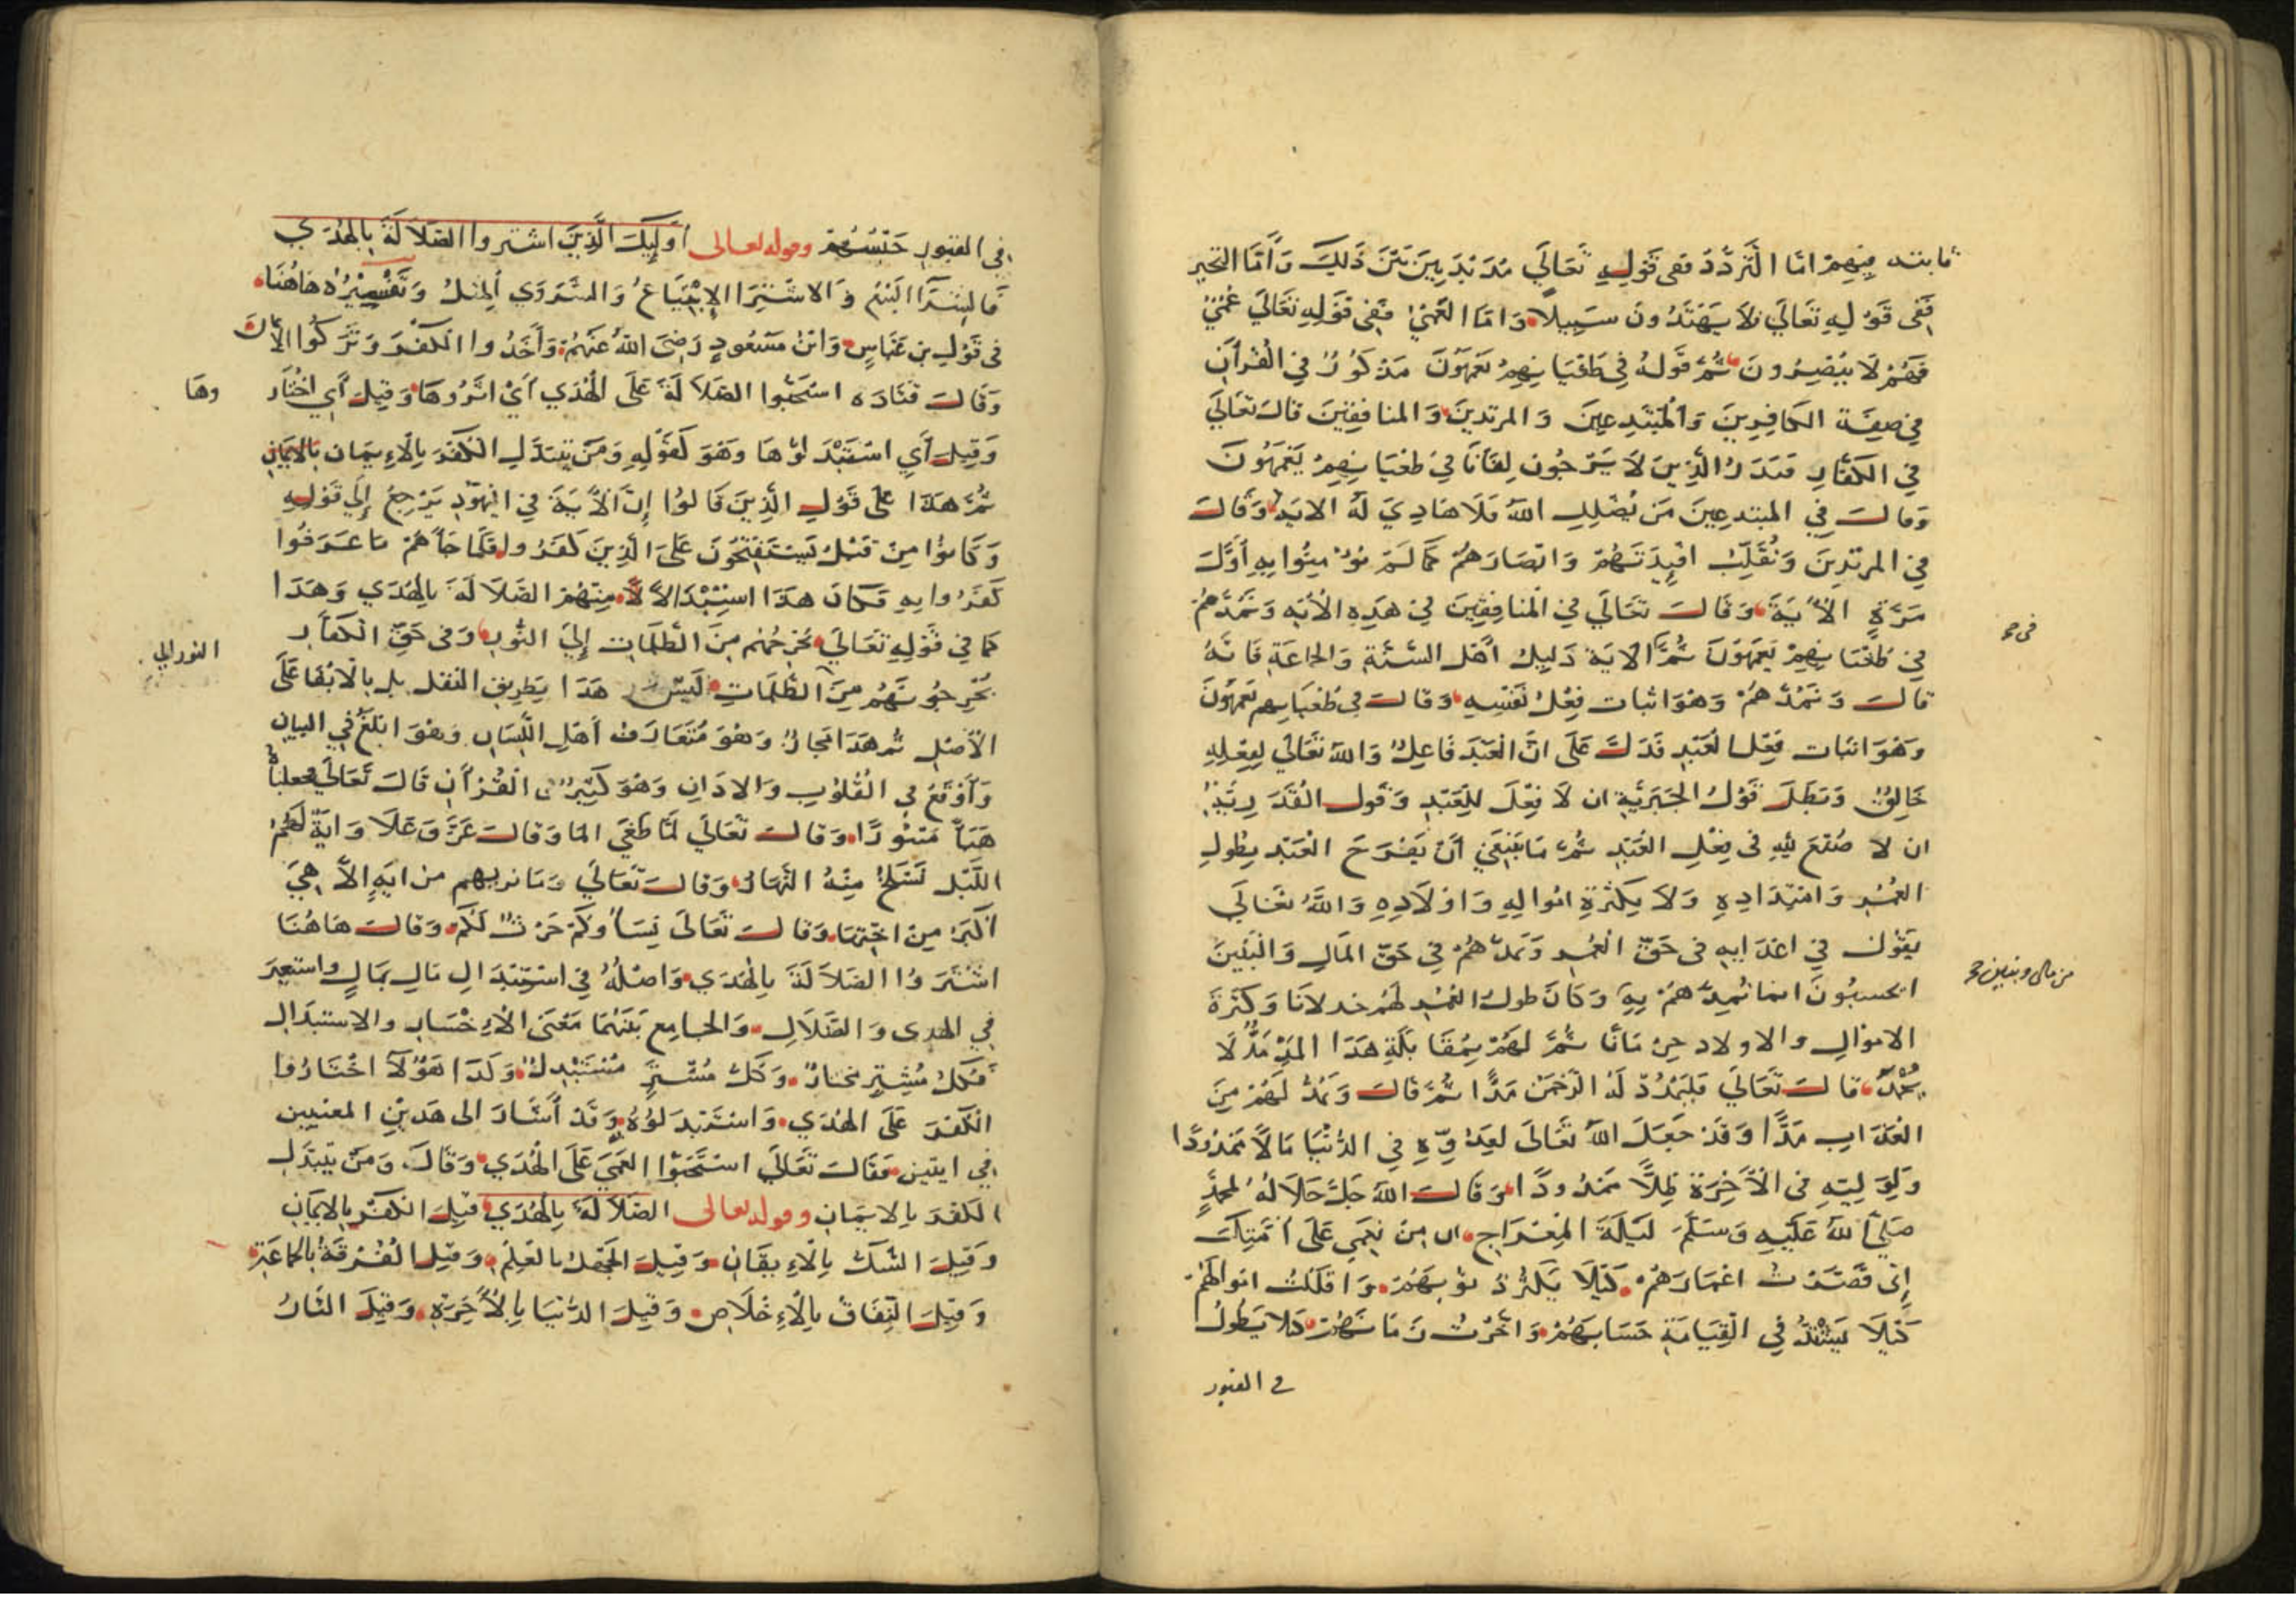 ثابتة فيهم اما التردد ففى قوله تعالى مذبذبين بين ذلك واما التحير
ففى قوله تعالى لا يهتدون سبيلا واما العمى ففى قوله تعالى عمى
فهم لا يبصرون ثم قوله في طغيانهم يعمهون مذكور في القرآن
في صفة الكافرين والمبتدعين والمرتدين والمنافقين قال تعالى
في الكفار فنذر الذين لا يرجون لقانا في طغيانهم يعمهون
وقال في المبتدعين من يضلل الله فلا هادي له الاية وقال
في المرتدين ونقلب افيدتهم وابصارهم كما لم يؤمنوا به أول
مرة الآية وقال تعالى في المنافقين في هذه الأية ونمدهم
فى
في طغيانهم يعمهون ثم الاية دليل أهل السنة والجاعة فانه
قال ونمدهم وهو اثبات فعل نفسه وقال في طغيانهم يعمهون
وهو اثبات فعل العبد فدل على ان العبد فاعل والله تعالى لفعله
خالق وبطل قول الجبرية ان لا فعل للعبد وقول القدرية
ان لا صنع لله فى فعل العبد ثم ما ينبغي أن يفرح العبد بطول
العمر وامتداده ولا بكثرة امواله واولاده والله تعالى
يقول في اعدايه فى حق العمر ونمدهم في حق المال والبنين
ايحسبون انما نمدهم به وكان طول العمر لهم خذلانا وكثرة
من مال وبنين
الاموال والاولاد حرمانا ثم لهم بمقابلة هذا المد مد لا
قال تعالى فليمدد له الرحمن مدا ثم قال ونمد لهم من
العذاب مدا وقد جعل الله تعالى لعدوه في الدنيا مالا ممدودا
ولوليه فى الآخرة ظلا ممدودا وقال الله جل جلاله لمحمد
صلى الله عليه وسلم ليلة المعراج ان من نعمي على أمتك
إني قصرت اعمارهم كيلا يكثر ذنوبهم واقللت اموالهم
كيلا يشتد في القيامة حسابهم واخرت زمانهم كلا يطول
في القبور
في القبور حبسهم وقوله تعالى أوليك الذين اشتروا الضلالة بالهدى
فالشرا البيع والاشترا الابتياع والشروى المثل وتفسيره هاهنا
فى قول بن عباس وابن مسعود رضى الله عنهم وأخذوا الكفر وتركوا الايمان
وقال قتاده استحبوا الضلالة على الهدى أي اثروها وقيل أي اختار
وها
وقيل أي استبدلوها وهو كقوله ومن يتبدل الكفر بالايمان
ثم هذا على قول الذين قالوا إن الآية في اليهود يرجع إلى قوله
وكانوا من قبل يستفتحون على الذين كفروا فلما جاهم ما عرفوا
كفروا به فكان هذا استبدالا منهم الضلالة بالهدى وهذا
كما في قوله تعالى يخرجهم من الظلمات إلى النور وفى حق الكفار
يخرجونهم من الظلمات ليس هذا بطريق النقل بل بالابقا على
النور الي
الأصل ثم هذا مجاز وهو متعارف أهل اللسان وهو ابلغ في البيان
وأوقع في القلوب والاذان وهو كثير فى القرآن قال تعالى فجعلناه
هبأ منثورا وقال تعالى لما طغى الما وقال عز وعلا واية لهم
الليل نسلخ منه النهار وقال تعالى وما نريهم من اية إلا هي
اكبر من اختها وقال تعالى نساؤكم حرث لكم وقال هاهنا
اشتروا الضلالة بالهدى واصله في استبدال مال بمال واستعير
في الهدى والضلال والجامع بينهما معنى
والاستبدال
فكل مشتر مختار وكل مشتر مستبدل وكذا هؤلآ اختاروا
الكفر على الهدى واستبدلوه وقد أشار الى هذين المعنيين
في ايتين فقال تعالى استحبوا العمى على الهدى وقال ومن يتبدل
الكفر بالايمان وقوله تعالى الضلالة بالهدى قيل الكفر بالايمان
وقيل الشك بالايقان وقيل الجهل بالعلم وقيل الفرقة بالجاعة
وقيل النفاق بالاخلاص وقيل الدنيا بالأخرة وقيل النار